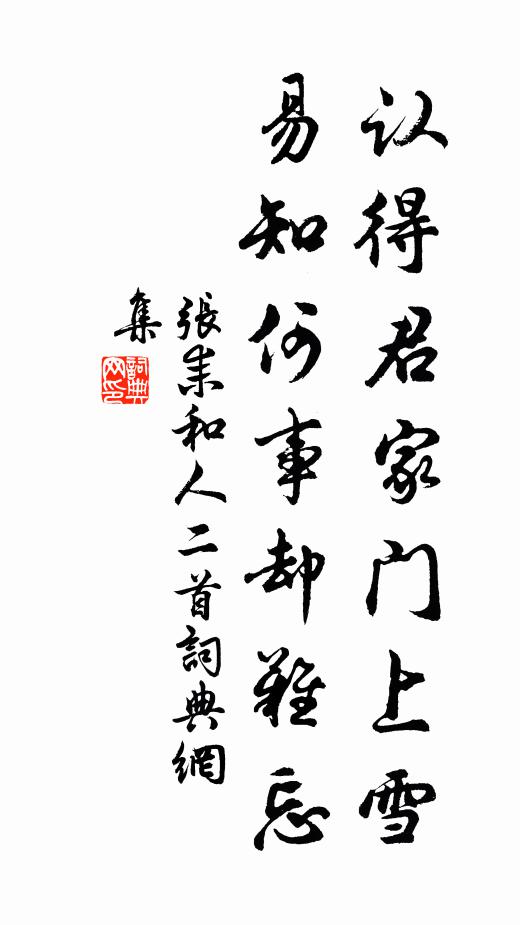 认得君家门上雪
易知何事却难忘
張耒和人二首詞典網
集
詞典
网印